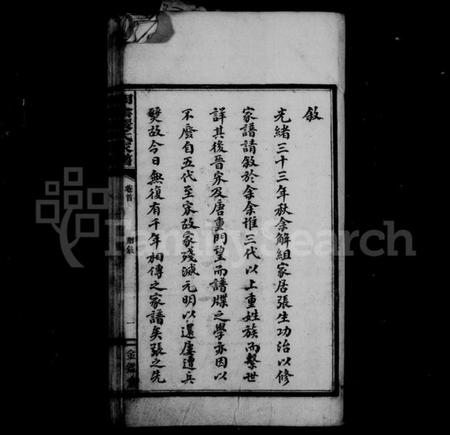 敘
光緒三十三年秋余解組家居張生功治以修
家譜請敘於余余推三代以上重姓族而繫世
詳其後晉家及唐重門望而譜牒之學亦因以
不廢自五代至宋故家殘滅元明以還屢遭兵
燹故今日無復有千年相傳之家譜矣張之先
張氏家譜
卷首
一
金鑑堂
FamilySearch